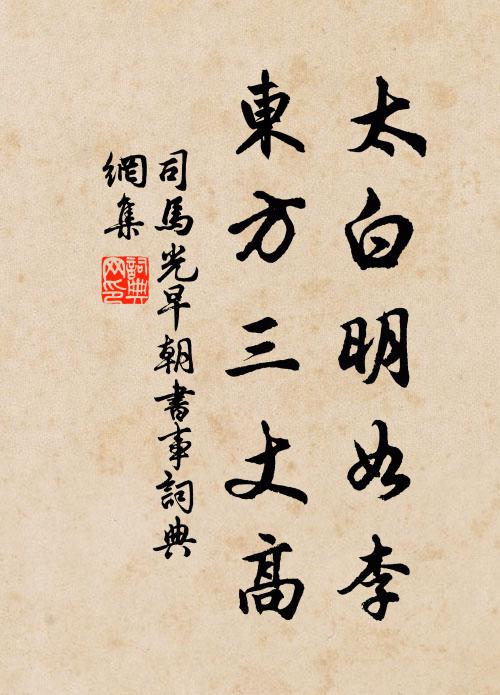 太白明如李
東方三丈高
司馬光早朝書事詞典
網集
詞典
网印